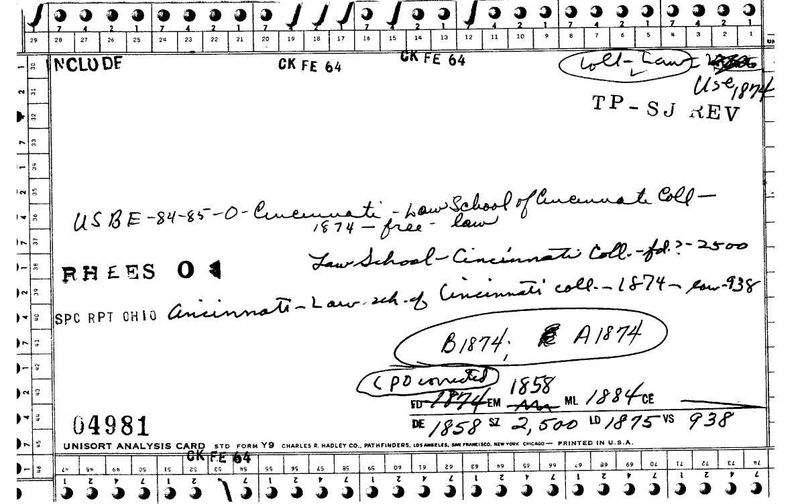 NCLUDE CK FE 64 CK FE 64 Coll-Law
Use 1874
TP-SJ REV
USBE-84-85-O-Cincinnati-Law School of Cincinnate Coll-
1874-free-law
RHEES O
Law School-Cincinnati Coll.-fd.?-2500
SPC RPT OHIO Cincinnati-Law.sch.of Cincinnati coll.-1874-law-938
B1874; A1874
CPD corrected
FD 1874 EM 1858 ML 1884 CE
DE 1858 SZ 2,500 LD 1875 VS 938
04981
UNISORT ANALYSIS CARD STD FORM Y9 CHARLES R. HADLEY CO., PATHFINDERS, LOS ANGELES, SAN FRANCISCO, NEW YORK CHICAGO — PRINTED IN U.S.A.
CK FE 64